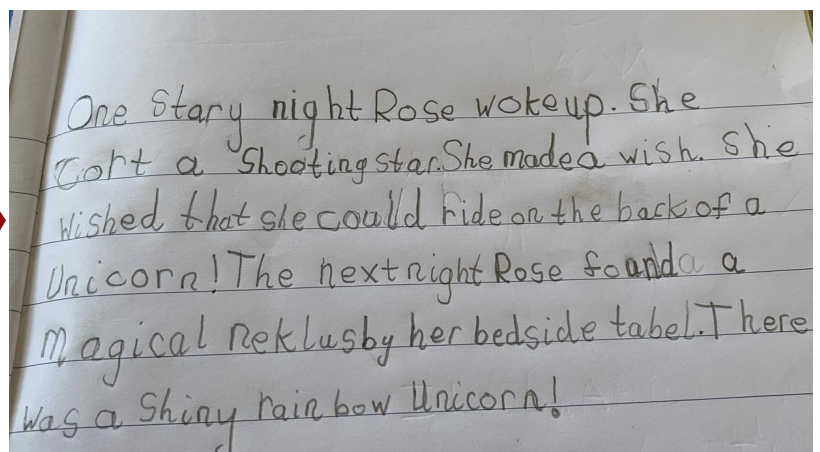 One Stary night Rose woke up. She
Cort a Shooting star. She made a wish. She
Wished that she could ride on the back of a
Unicorn! The next night Rose foand a
Magical Neklus by her bedside tabel. There
Was a Shiny rainbow Unicorn!